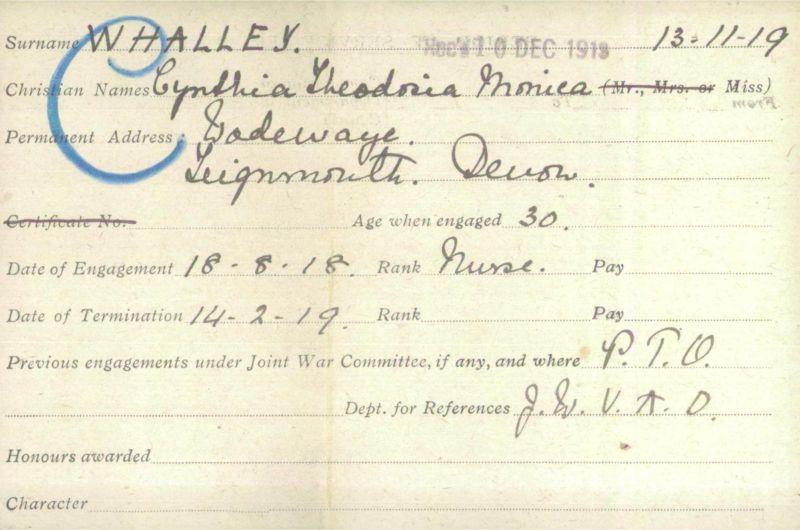 Surname WHALLEY. Rec'd 10 DEC 1919 13-11-19
Christian Names Cynthia Theodosia Monica (Mr., Mrs. or Miss)
Permanent Address: Wodewaye.
Teignmouth. Devon.
Certificate No. Age when engaged 30.
Date of Engagement 18-8-18. Rank Nurse. Pay
Date of Termination 14-2-19. Rank Pay
Previous engagements under Joint War Committee, if any, and where P.T.O.
Dept. for References J.W.V.A.D.
Honours awarded
Character